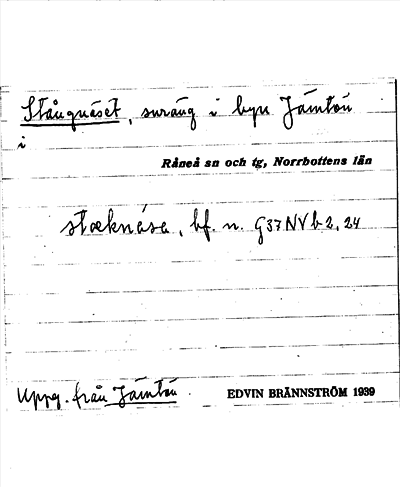 Stångnäset, suräng i byn Jämtön
i
Råneå sn och tg, Norrbottens län
stæknása, bf. n. G37NVb2,24
Uppg. från Jämtön
EDVIN BRÄNNSTRÖM 1939